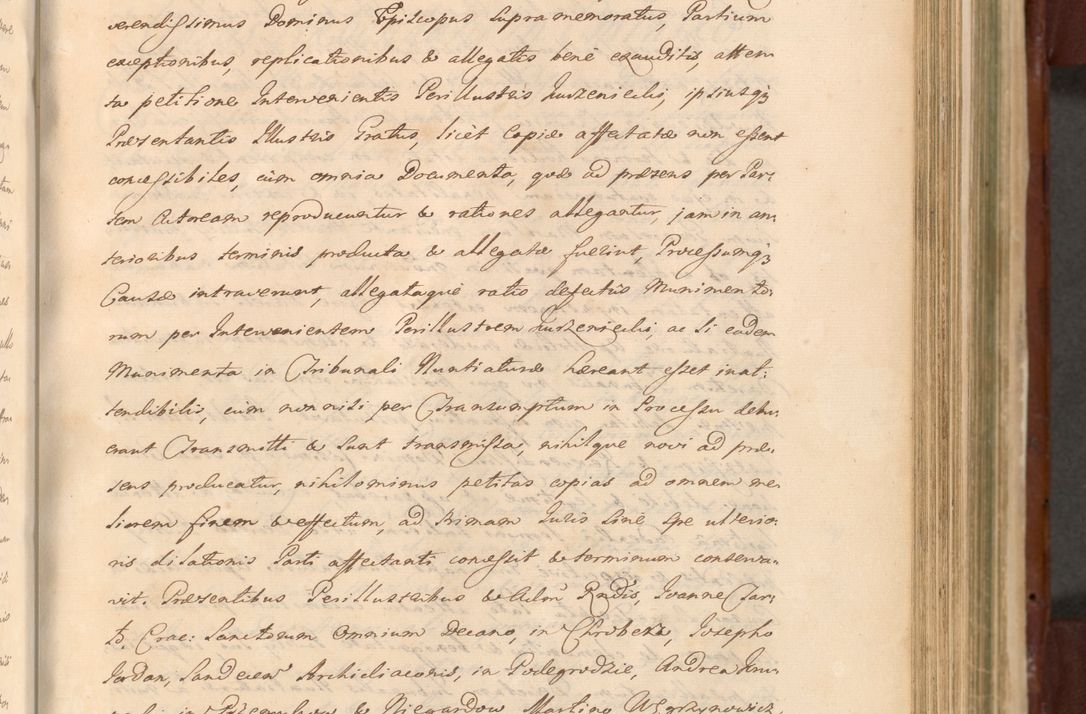 verendissimus Dominus Episcopus supramemoratus, Partium
exceptionibus, replicationibus & allegatis benè exauditis, atten-
ta petitione Intervenientis Perillustris Kurzeniecki, ipsiusq3
Præsentantis Illustris Gratus, licèt Copiæ affectatæ non essent
concessibiles, cùm omnia Documenta, quæ ad præsens per Par-
tem Actoream reproducuntur & rationes allegantur, jam in an-
terioribus terminis producta & allegata fuerint, Processumq3
Causæ intraverunt, allegataquè ratio defectûs Munimento-
rum per Intervenientem Perillustrem Kurzeniecki, ac si eadem
Munimenta in Tribunali Nuntiaturæ hæreant esset inat-
tendibilis, cùm non nisi per Transumptum in Processu debu-
erant Transmitti & sunt transmissa, nihilque novi ad præ-
sens producatur, nihilominus petitas copias ad omnem me-
liorem finem & effectum, ad primam Juris sinè spe ulterio-
ris dilationis Parti affectanti concessit & terminum conserva-
vit. Præsentibus Perillustribus & Adm Rndis, Joanne
Crac: Sanctorum Omnium Decano, in Chroberz, Josepho
Jordan, Sandecen Archidiacono, in Podegrodzie, Andrea
in & Niegardow Martino Węgrzynowicz